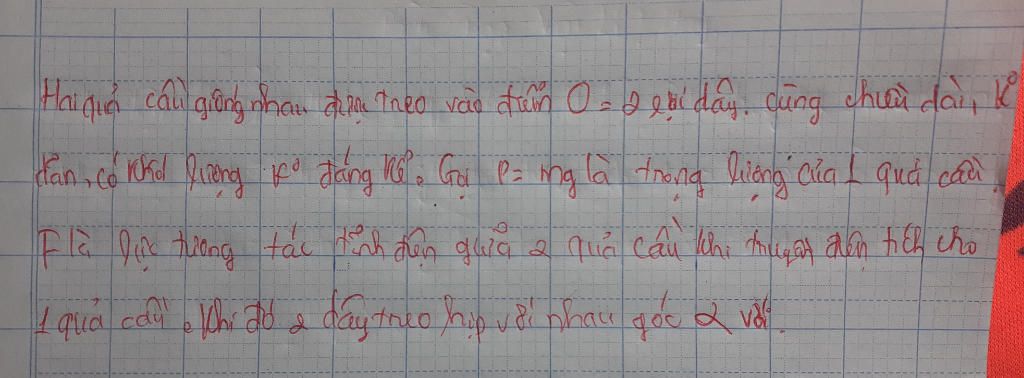 Hai quả cầu giống nhau được treo vào điểm O = 2 sợi dây. cùng chiều dài, K°
dãn, có khối lượng K° đáng kể. Gọi P = mg là trọng lượng của 1 quả cầu.
F là lực tương tác tĩnh điện giữa 2 quả cầu khi truyền điện tích cho
1 quả cầu. Khi đó 2 dây treo hợp với nhau góc α với.